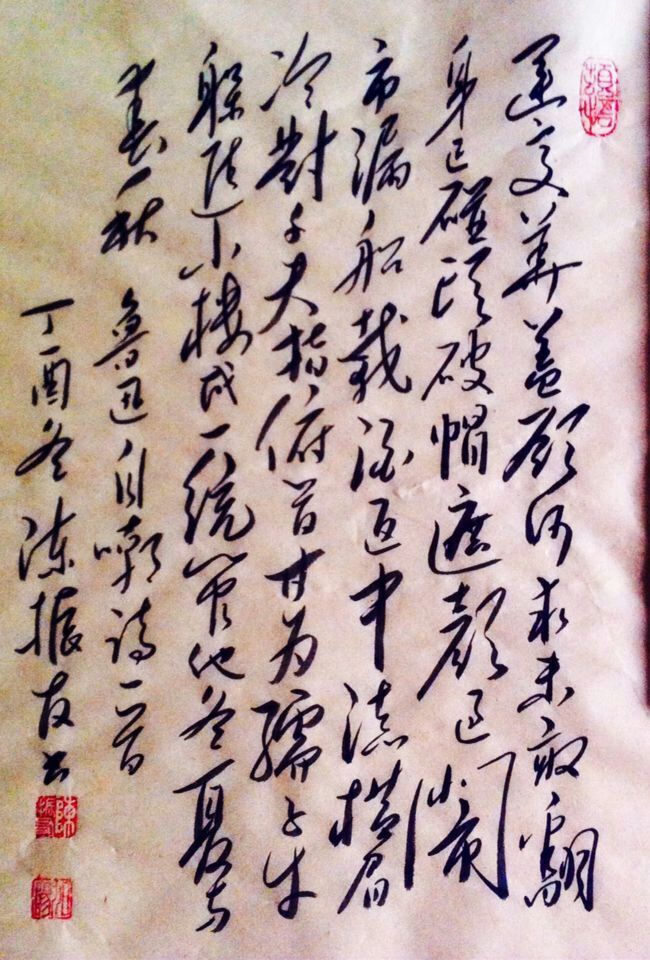 運交華蓋欲何求未敢翻
身已碰头破帽遮颜过闹
市漏船載酒泛中流横眉
冷對千夫指俯首甘为孺子牛
躲进小楼成一统管他冬夏与
春秋 鲁迅自嘲诗一首
丁酉冬陈振友书